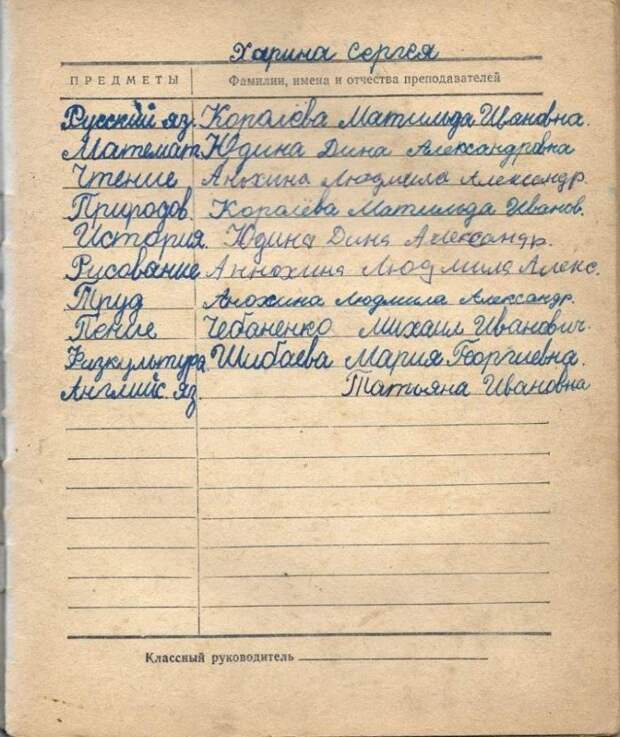 Харина Сергея
ПРЕДМЕТЫ Фамилии, имена и отчества преподавателей
Русский яз. Королёва Матильда Ивановна.
Математ. Юдина Дина Александровна
Чтение Анохина Людмила Александр.
Природов. Королёва Матильда Иванов.
История. Юдина Дина Александр.
Рисование Аннохина Людмила Алекс.
Труд Анохина Людмила Александр.
Пение Чебаненко Михаил Иванович.
Физкультура Шибаева Мария Георгиевна.
Английс. яз. Татьяна Ивановна
Классный руководитель